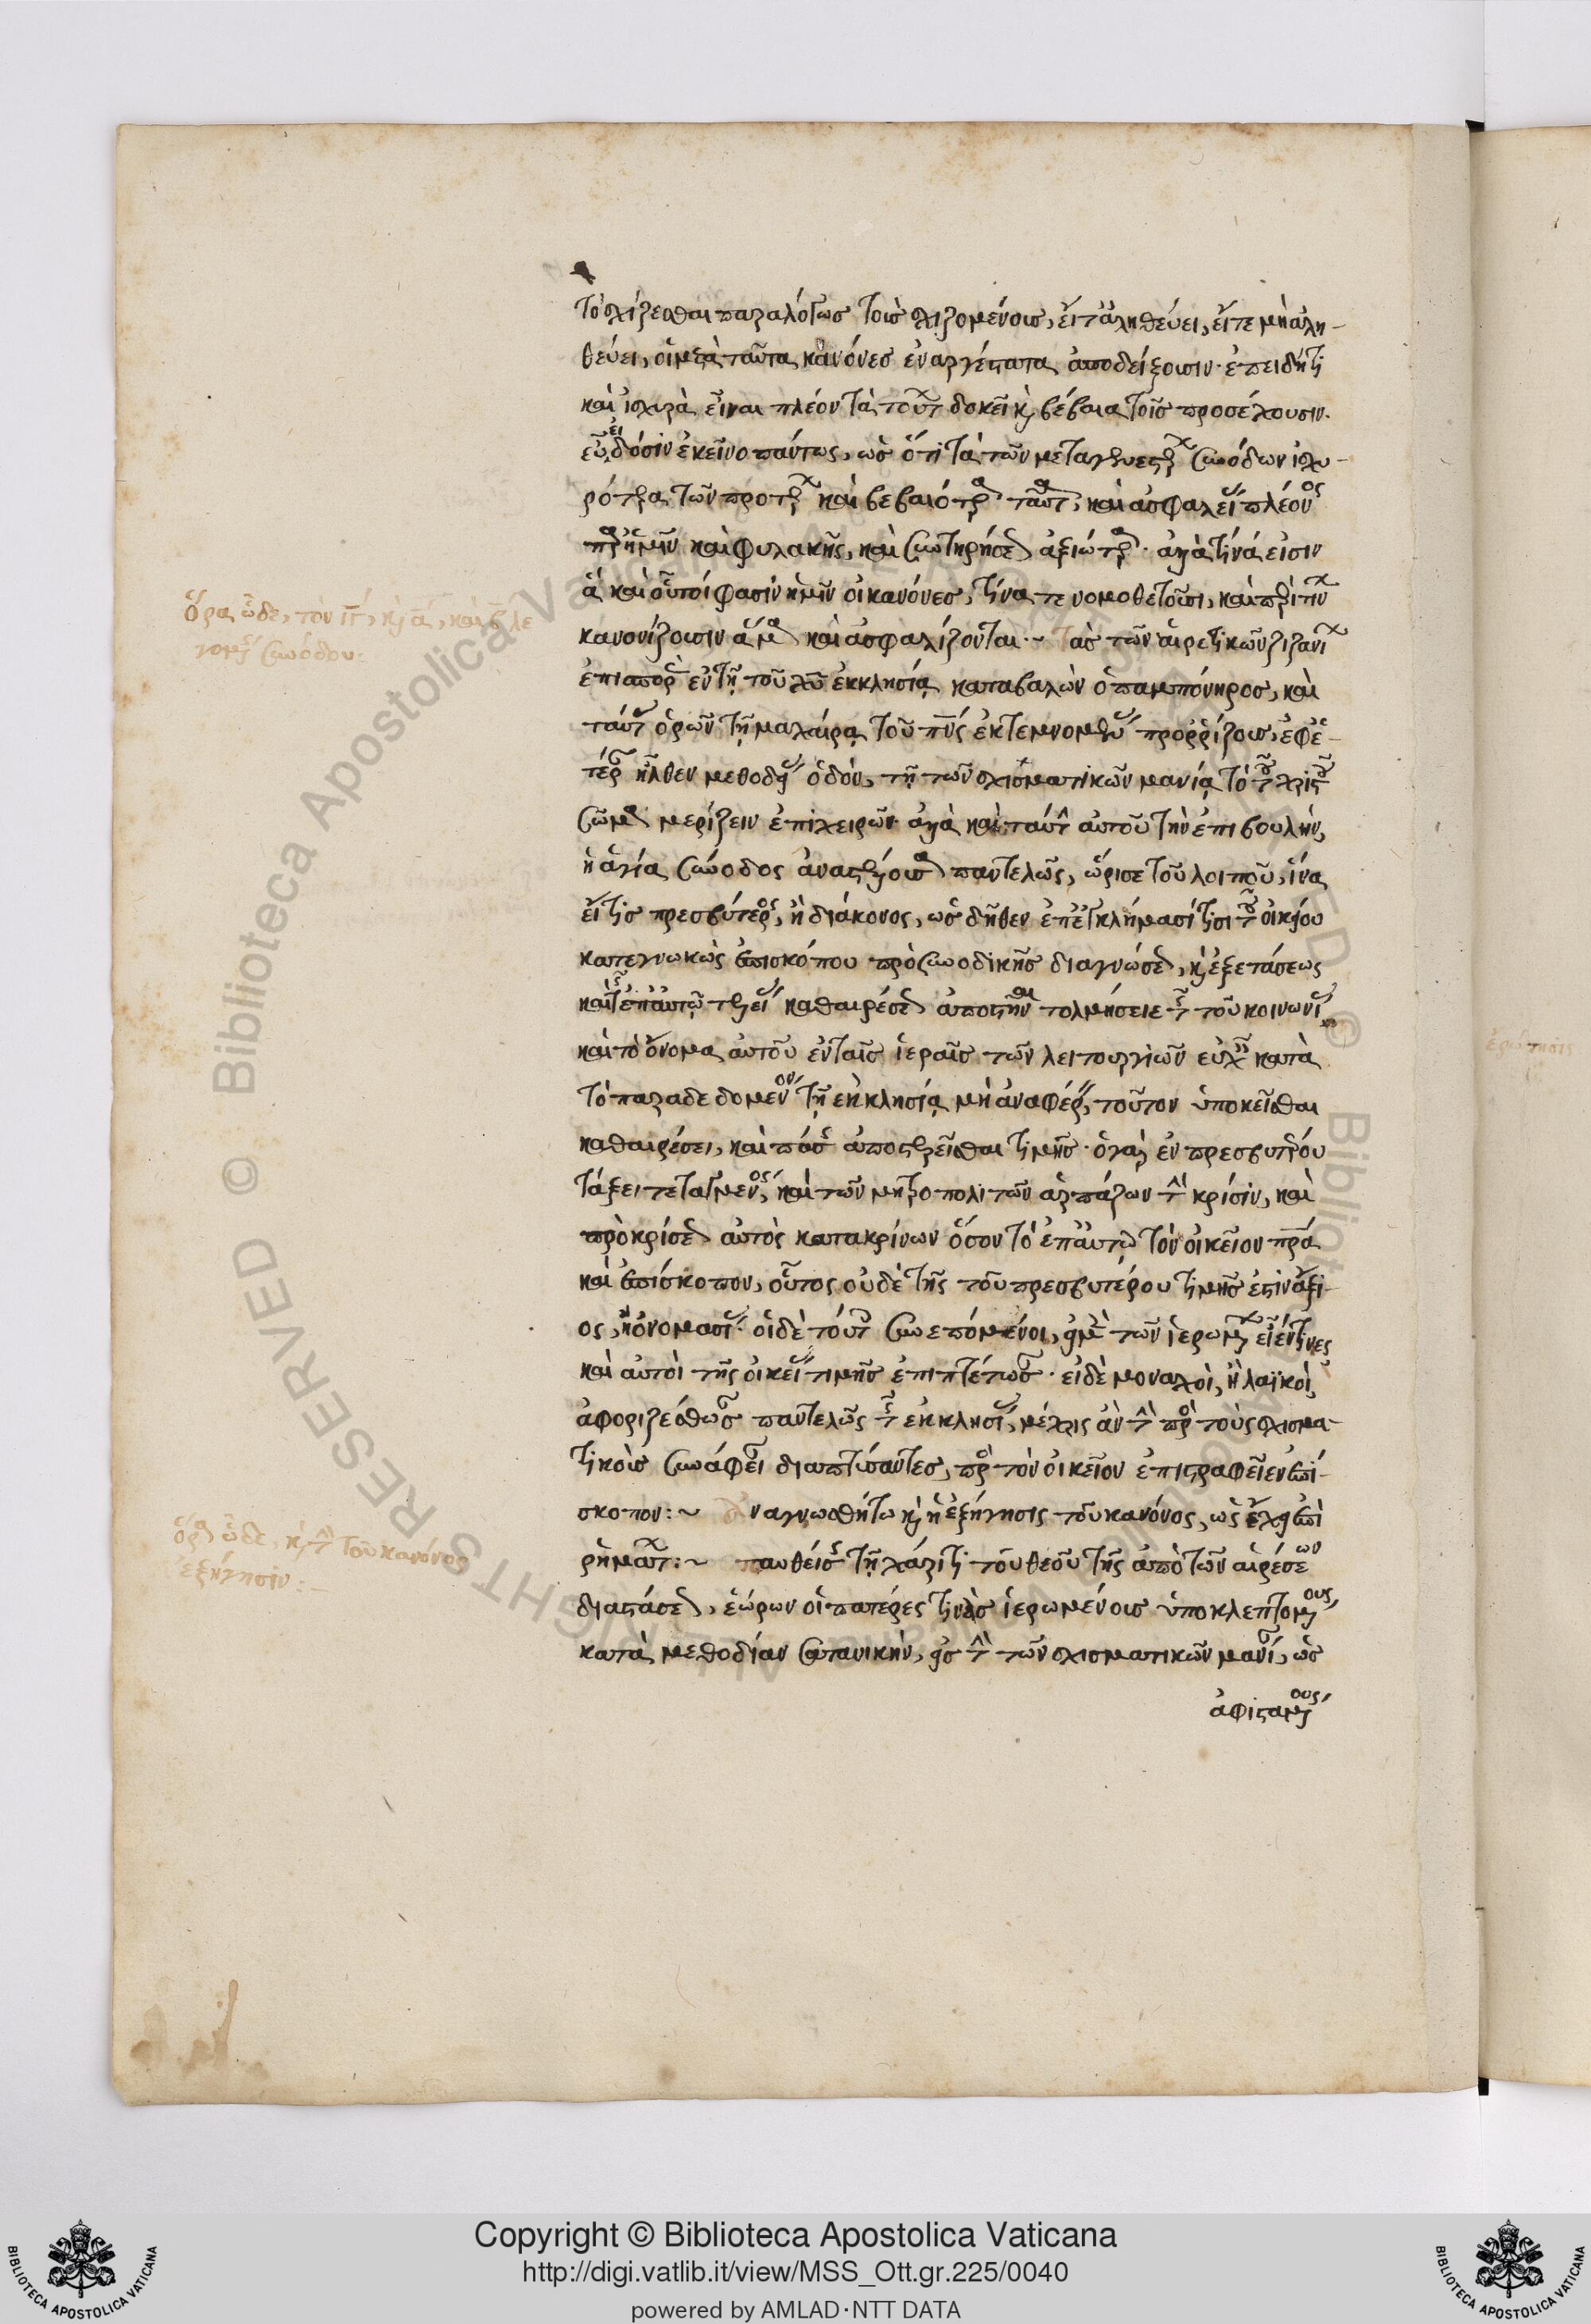 τὸ σχίζεσθαι παραλόγως τοῖς σχιζομένοις, εἴτ' ἀληθεύει, εἴτε μὴ ἀλη-
θεύει, οἱ μετὰ ταῦτα κανόνες ἐναργέστατα ἀποδείξουσιν· ἐπειδήτι
καὶ ἰσχυρὰ εἶναι πλέον τὰ τούτων δοκεῖ καὶ βέβαια τοῖς προσέχουσιν.
ἐκεῖνο πάντως, ὡς ὅτι τὰ τῶν μεταγενεστέρων συνόδων ἰσχυ-
ρότερα τῶν προτέρων καὶ βεβαιότερα ταῦτα, καὶ ἀσφαλείας πλέονος
παρ' ἡμῖν καὶ φυλακῆς, καὶ συντηρήσεως ἀξιώτερα· ἀλλὰ τίνά εἰσιν
ἃ καὶ οὗτοί φασιν ἡμῖν οἱ κανόνες, τίνα τε νομοθετοῦσι, καὶ περὶ τίνων
κανονίζουσιν ἅμα καὶ ἀσφαλίζονται·~ τὰς τῶν αἱρετικῶν ζιζανίων
ἐπισπορὰς ἐν τῇ τοῦ χυ ἐκκλησίᾳ καταβαλὼν ὁ παμπόνηρος, καὶ
ταύτας ὁρῶν τῇ μαχαίρᾳ τοῦ πνς ἐκτεμνομένας προρρίζους, ἐφ' ἑ-
τέραν ἦλθεν μεθοδείας ὁδόν, τῇ τῶν σχισματικῶν μανίᾳ τὸ τοῦ χριστοῦ
σῶμα μερίζειν ἐπιχειρῶν· ἀλλὰ καὶ ταύτην αὐτοῦ τὴν ἐπιβουλὴν,
ἡ ἁγία σύνοδος ἀναστέλλουσα παντελῶς, ὥρισε τοῦ λοιποῦ, ἵνα
εἴ τις πρεσβύτερος, ἢ διάκονος, ὡς δῆθεν ἐπ' ἐγκλήμασί τισι τοῦ οἰκείου
κατεγνωκὼς ἐπισκόπου πρὸ συνοδικῆς διαγνώσεως, καὶ ἐξετάσεως
καὶ τῆς ἐπ' αὐτῷ τελείας καθαιρέσεως ἀποστῆναι τολμήσειε τῆς τοῦ κοινωνίας
καὶ τὸ ὄνομα αὐτοῦ ἐν ταῖς ἱεραῖς τῶν λειτουργιῶν εὐχαῖς κατὰ
τὸ παραδεδομένον τῇ ἐκκλησίᾳ μὴ ἀναφέρει, τοῦτον ὑποκεῖσθαι
καθαιρέσει, καὶ πάσης ἀποστερεῖσθαι τιμῆς· ὁ γὰρ ἐν πρεσβυτέρου
τάξει τεταγμένος, καὶ τῶν μητροπολιτῶν ἁρπάζων τὴν κρίσιν, καὶ
πρὸ κρίσεως αὐτὸς κατακρίνων ὅσον τὸ ἐπ' αὐτῷ τὸν οἰκεῖον πρα
καὶ ἐπίσκοπον, οὗτος οὐδὲ τῆς τοῦ πρεσβυτέρου τιμῆς ἐστὶν ἄξι-
ος, ἢ ὀνομασίας· οἱ δὲ τούτῳ συνεπόμενοι, εἰ μὲν τῶν ἱερωμένων εἶεν τινες
καὶ αὐτοὶ τῆς οἰκείας τιμῆς ἐκπιπτέτωσαν· εἰ δὲ μοναχοὶ, ἢ λαϊκοὶ,
ἀφοριζέσθωσαν παντελῶς τῆς ἐκκλησίας, μέχρις ἂν τὴν πρὸς τοὺς σχισμα-
τικοὺς συνάφειαν διαπτύσαντες, πρὸς τὸν οἰκεῖον ἐπιστραφεῖεν ἐπί-
σκοπον:~ ἀναγνωσθήτω καὶ ἡ ἐξήγησις τοῦ κανόνος, ὡς ἔχει ἐπὶ
ῥημάτων:~ παυθείσης τῇ χάριτι τοῦ θεοῦ τῆς ἀπὸ τῶν αἱρέσεων
διαστάσεως, ἑώρων οἱ πατέρες τινὰς ἱερωμένους ὑποκλεπτομένους
κατὰ μεθοδίαν σατανικὴν, εἰς τὴν τῶν σχισματικῶν μανίαν, ὡς
ἀφισταμένους
ὅρα ὧδε, τὸν
συνόδου:
ὅρα ὧδε, καὶ τὴν τοῦ κανόνος
ἐξήγησιν:
ἐρώτησις
Copyright © Biblioteca Apostolica Vaticana
http://digi.vatlib.it/view/MSS_Ott.gr.225/0040
powered by AMLAD·NTT DATA
BIBLIOTECA APOSTOLICA VATICANA
BIBLIOTECA APOSTOLICA VATICANA